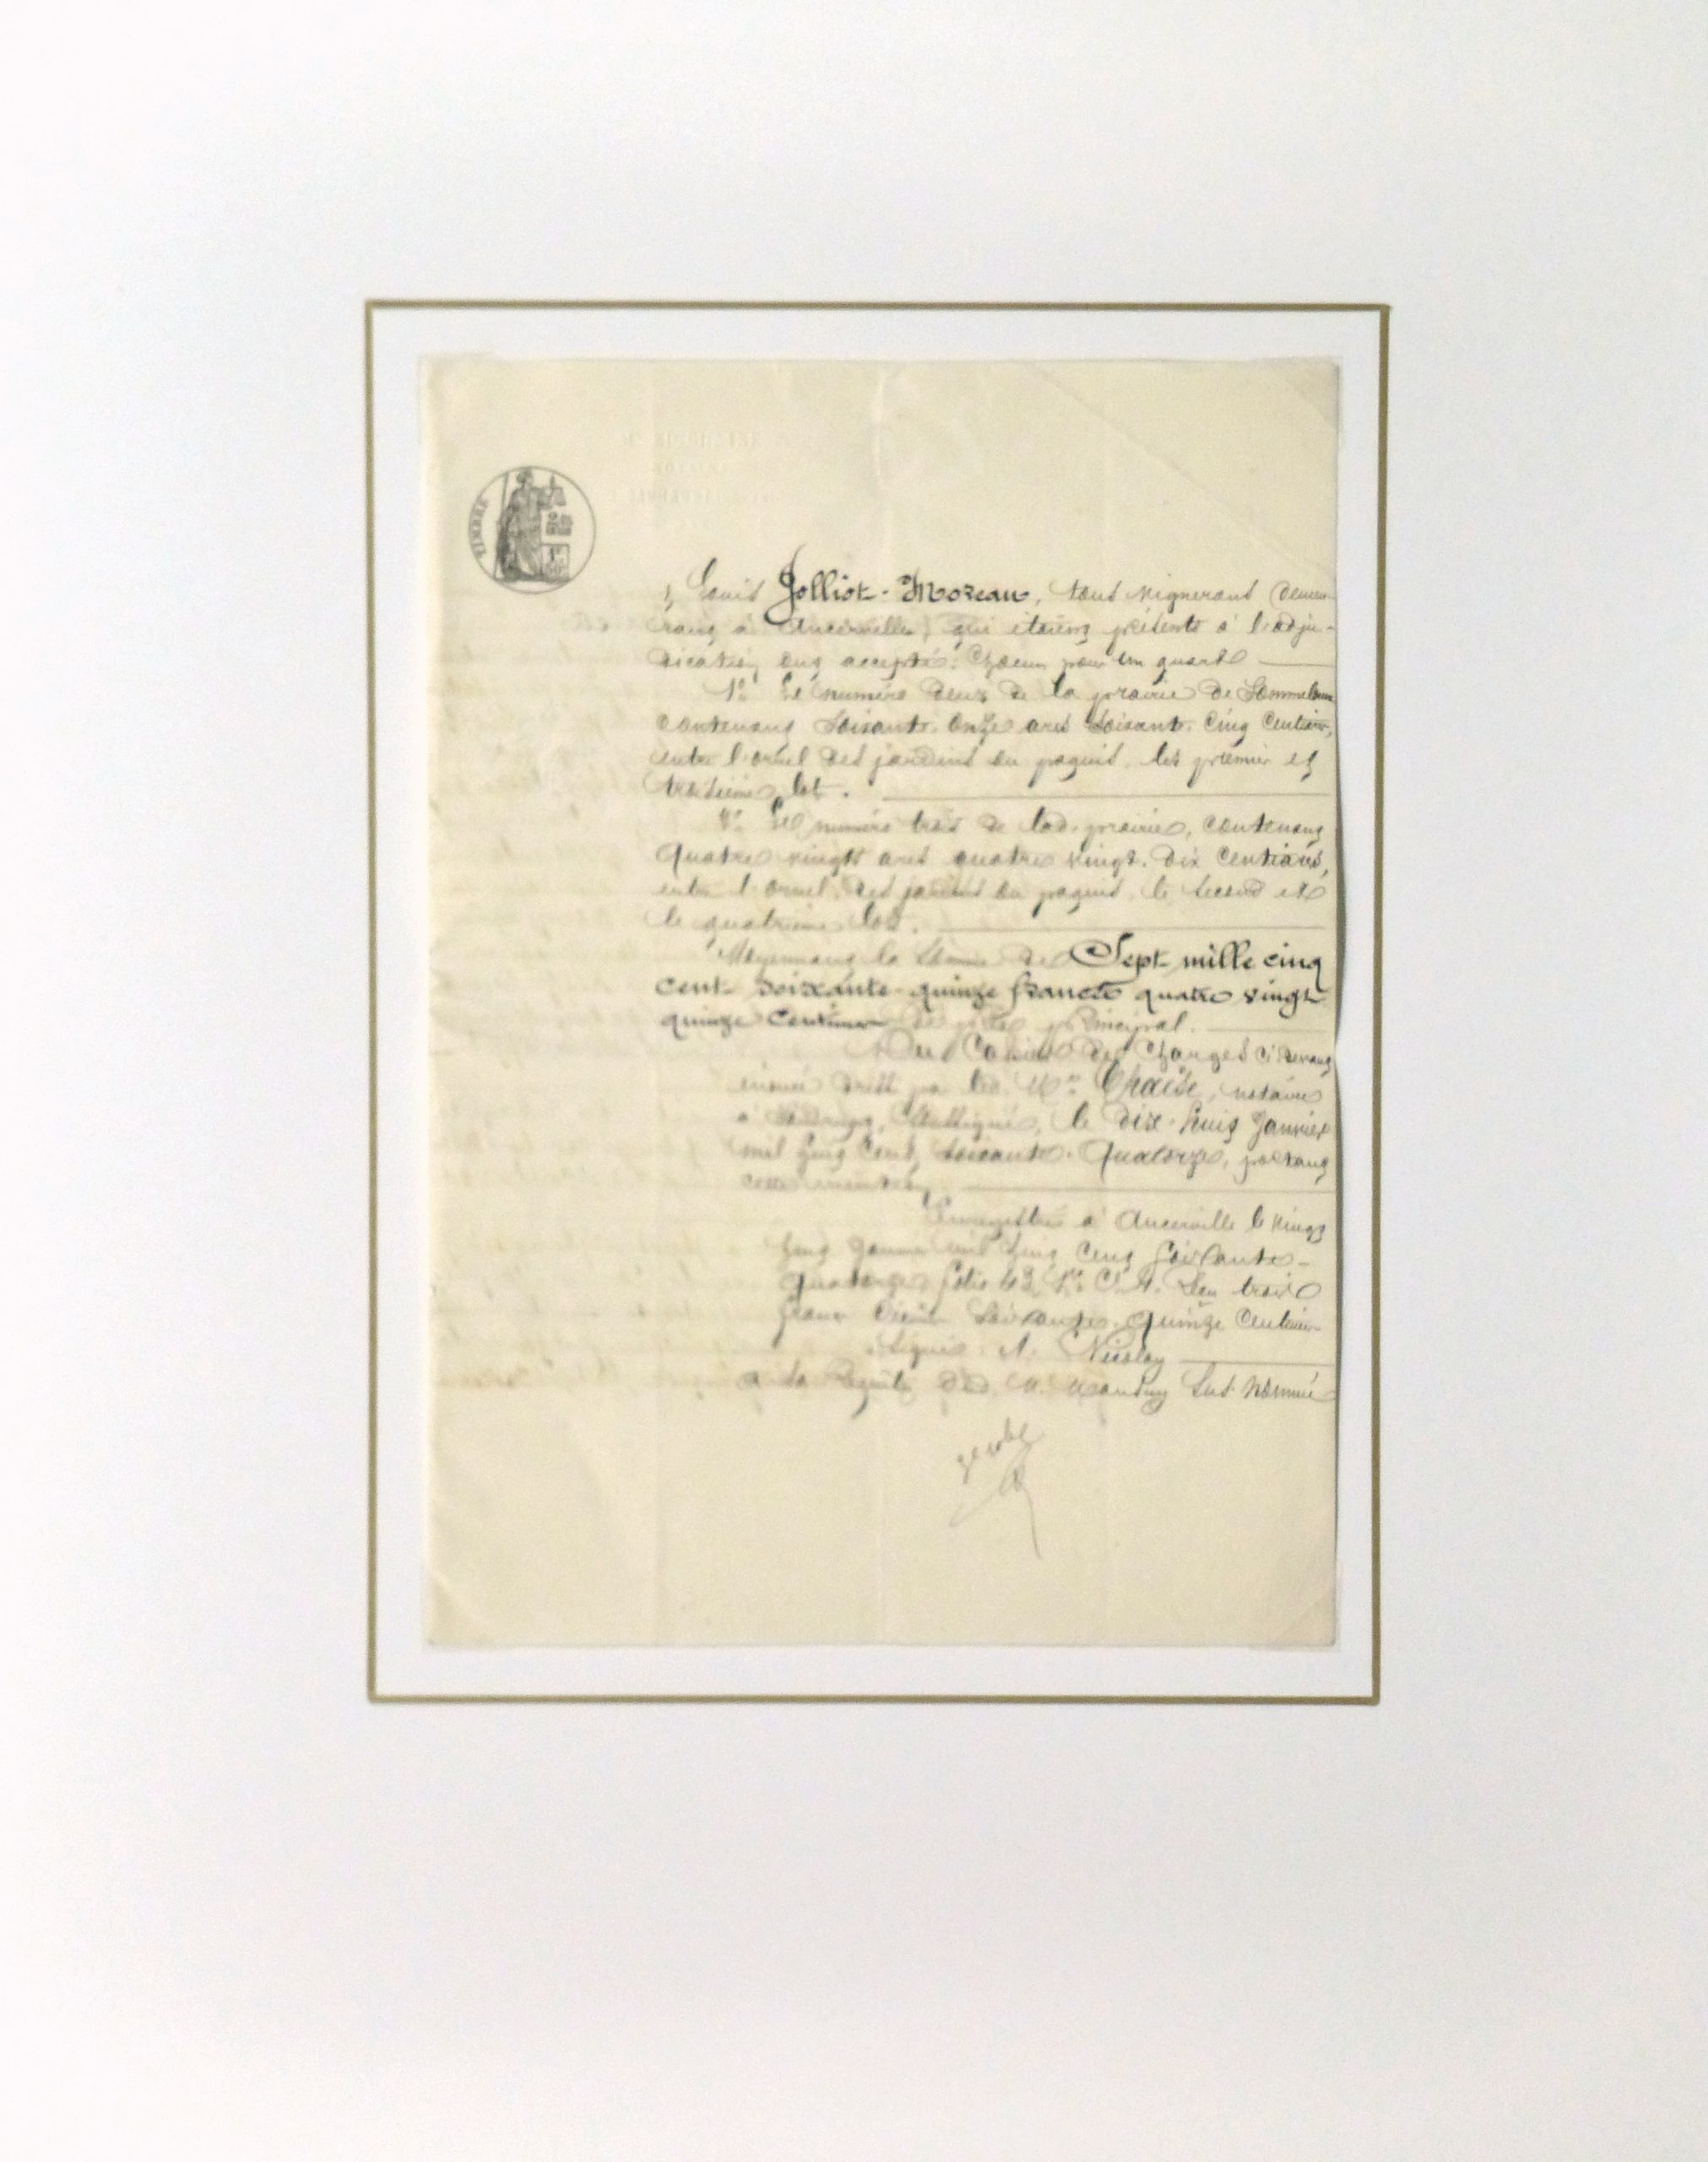 TIMBRE
& Louis Jolliot-Moreau, tous vignerons demeu-
rant à Ancerville, qui étaient présents à l'adju-
dication ont accepté. Chacun pour un quart
1° Le numéro deux de la prairie de
contenant soixante onze ares soixante cinq centiares,
entre l'ornel des jardins du paquis, les premier et
troisième lot.
Le numéro trois de lad. prairie, contenant
quatre vingts ares quatre vingt dix centiares,
entre l'ornel des jardins du paquis le second et
le quatrième lot.
Moyennant la somme de Sept mille cinq
cent soixante quinze francs quatre vingt
quinze centimes de prix principal.
Du Cahier des Charges ci devant
énoncé par led. Me Chaise, notaire
à soussigné, le dix huit Janvier
mil huit cent soixante Quatorze, portant
cette mention.
Enregistré à Ancerville le vingt
huit Janvier mil huit cent soixante-
quatorze, folio 43, Reçu trois
francs décimes soixante quinze centimes
Signé: A. Nicolay
a la Requête dud. M. sus nommé